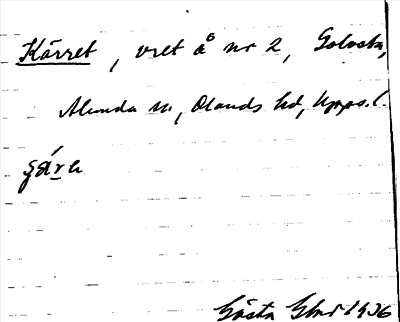 Kärret, vret å nr 2, Golvsta,
Alunda sn, Olands hd, Upps. l.
Gösta 1936